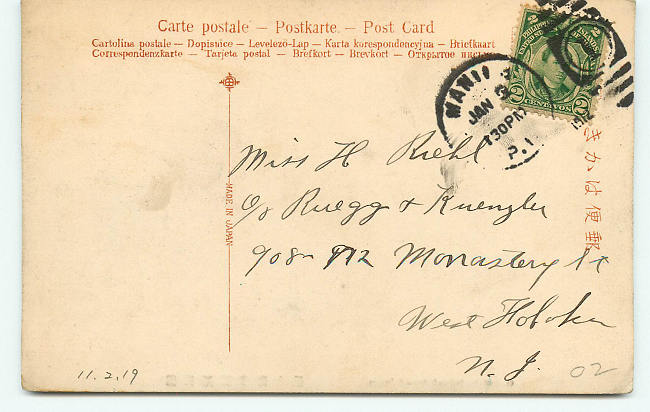 Carte postale – Postkarte. – Post Card
Cartolina postale – Dopisnice – Levelezö-Lap – Karta korespondencyjna – Briefkaart
Correspondenzkarte – Tarjeta postal – Brefkort – Brevkort – Открытое письмо
2 PHILIPPINE ISLANDS 2
2 CENTAVOS 2
JAN
130PM
P.I.
きかは便郵
MADE IN JAPAN
Miss H Riehl
c/o Ruegg & Kuenzler
908-912 Monastery St
West Hoboken
N. J.
11.2.19
02